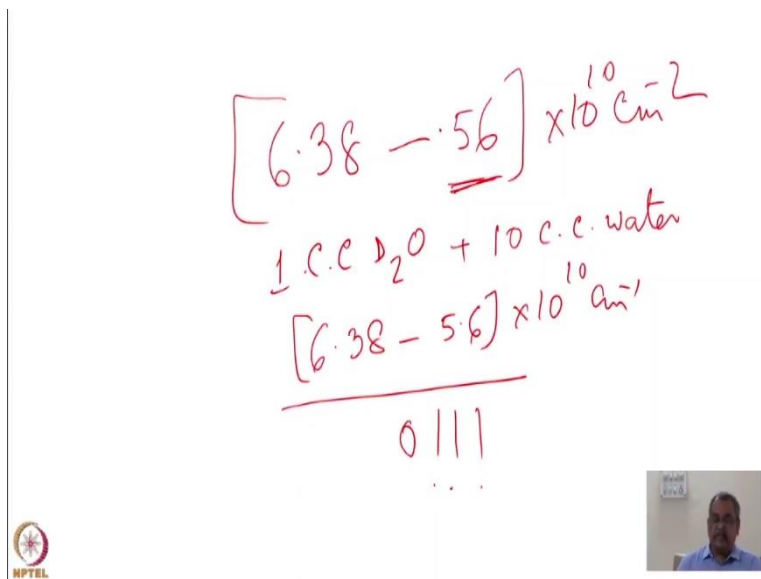 [6.38 — .56] x10¹⁰ cm⁻²
1 C.C D₂O + 10 C.C. water
[6.38 - 5.6] x10¹⁰ cm⁻¹
0 !!!
NPTEL